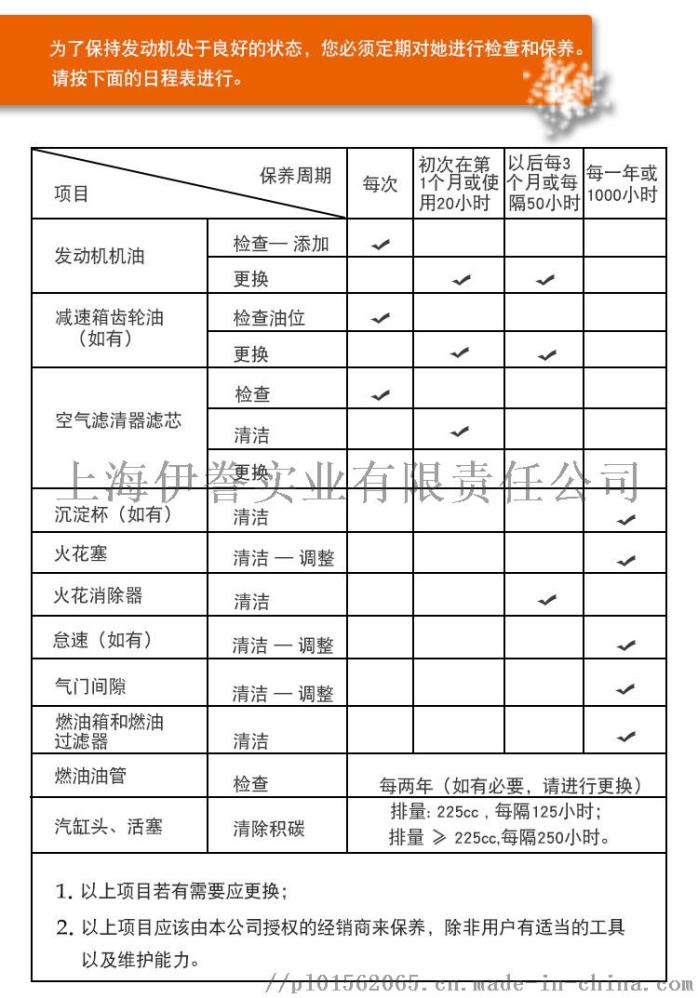 为了保持发动机处于良好的状态，您必须定期对她进行检查和保养。
请按下面的日程表进行。
保养周期
项目
每次
初次在第
1个月或使
用20小时
以后每3
个月或每
隔50小时
每一年或
1000小时
发动机机油
检查— 添加
更换
减速箱齿轮油
（如有）
检查油位
更换
空气滤清器滤芯
检查
清洁
更换
上海伊誉实业有限责任公司
沉淀杯（如有）
清洁
火花塞
清洁 — 调整
火花消除器
清洁
怠速（如有）
清洁 — 调整
气门间隙
清洁 — 调整
燃油箱和燃油
过滤器
清洁
燃油油管
检查
每两年（如有必要，请进行更换）
汽缸头、活塞
清除积碳
排量: 225cc , 每隔125小时；
排量 ≥ 225cc,每隔250小时。
1. 以上项目若有需要应更换；
2. 以上项目应该由本公司授权的经销商来保养，除非用户有适当的工具
以及维护能力。
//pl01562065.cn.made-in-china.com/